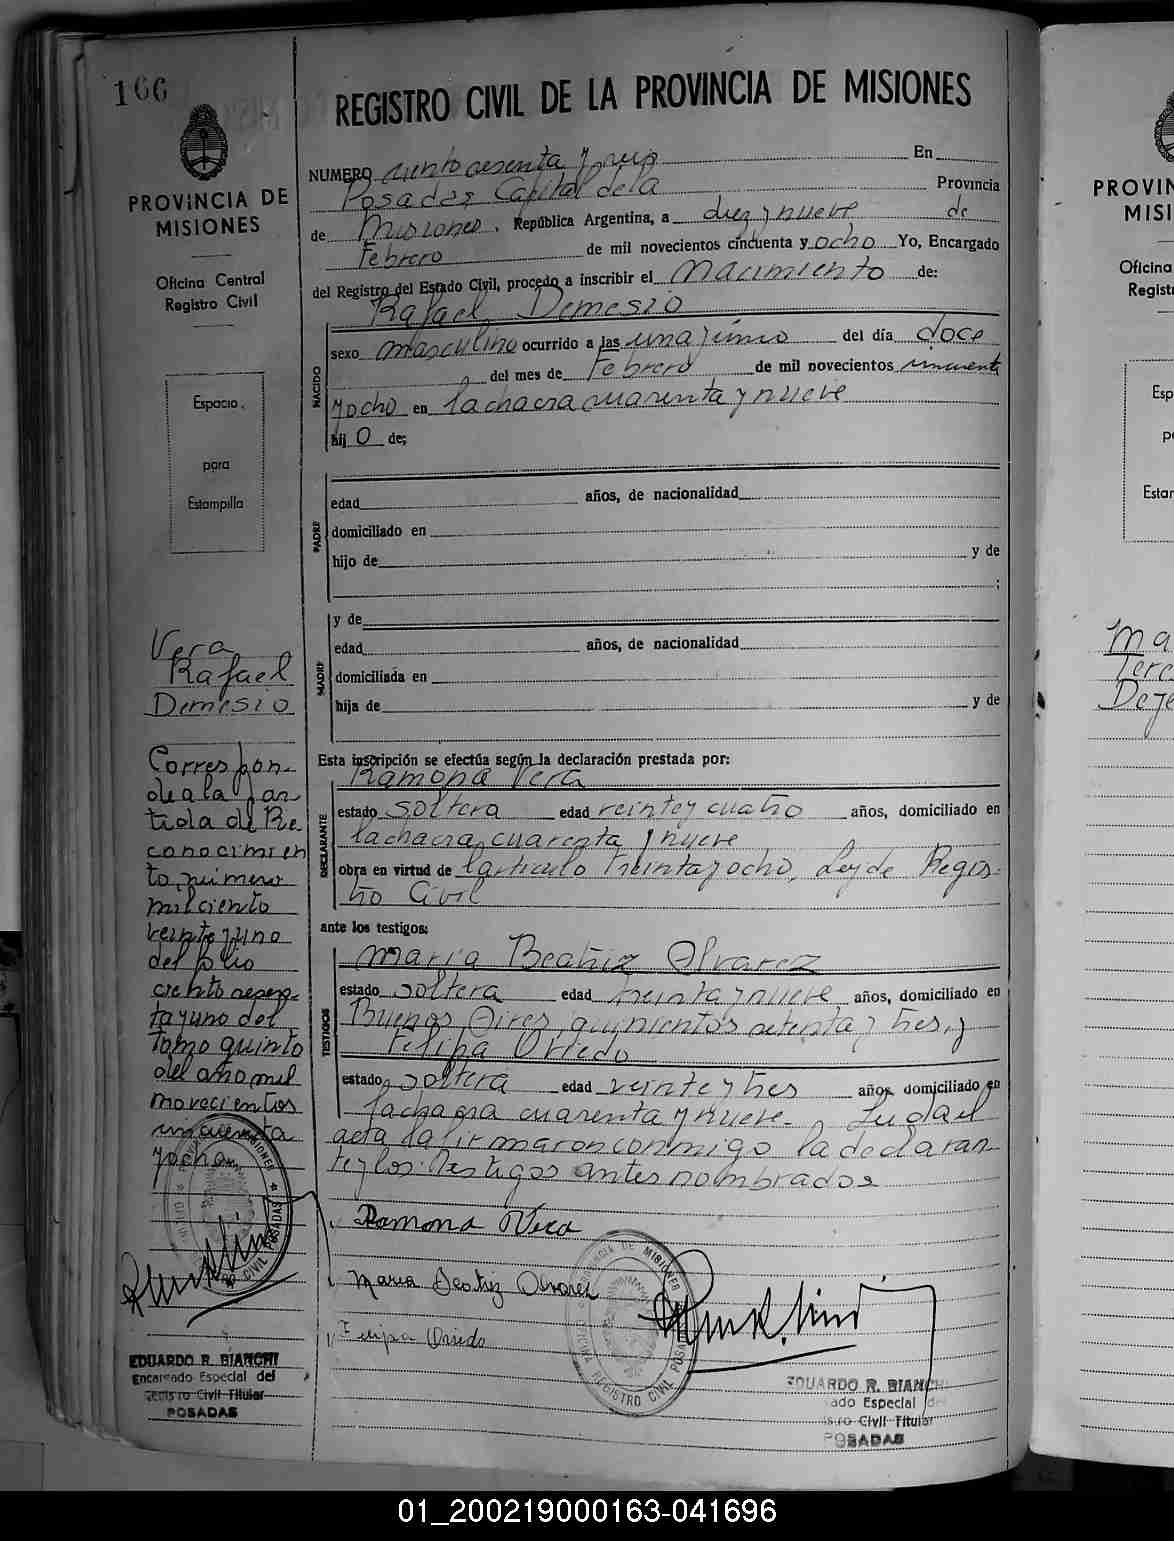 166
PROVINCIA DE
MISIONES
Oficina Central
Registro Civil
Espacio
para
Estampilla
Vera
Rafael
Demesio
Correspon-
de a la par
tida de Re
conocimien
to número
mil ciento
veinte y uno
del folio
ciento sesen-
ta y uno del
Tomo quinto
del año mil
novecientos
cincuenta
y ocho
EDUARDO R. BIANCHI
Encargado Especial del
Registro Civil Titular
POSADAS
REGISTRO CIVIL DE LA PROVINCIA DE MISIONES
NUMERO ciento sesenta y seis En
Posadas Capital de la Provincia
de Misiones. República Argentina, a diez y nueve de
Febrero de mil novecientos cincuenta y ocho Yo, Encargado
del Registro del Estado Civil, procedo a inscribir el Nacimiento de:
Rafael Demesio
NACIDO
sexo masculino ocurrido a las una y cinco del día doce
del mes de Febrero de mil novecientos cincuenta
y ocho en la chacra cuarenta y nueve
hij o de;
PADRE
edad años, de nacionalidad
domiciliado en
hijo de y de
;
MADRE
y de
edad años, de nacionalidad
domiciliada en
hija de y de
Esta inscripción se efectúa según la declaración prestada por:
Ramona Vera
DECLARANTE
estado soltera edad veinte y cuatro años, domiciliado en
la chacra cuarenta y nueve
obra en virtud de l artículo treinta y ocho, Ley de Regis-
tro Civil
ante los testigos:
TESTIGOS
María Beatriz Alvarez
estado soltera edad treinta y nueve años, domiciliado en
Buenos Aires quinientos setenta y tres, y
Felipa Oviedo
estado soltera edad veinte y tres años domiciliado en
la chacra cuarenta y nueve. Leida el
acta la firmaron conmigo la declaran-
te y los testigos antes nombrados
Ramona Vera
Maria Beatriz Alvarez
Felipa Oviedo
PROVINCIA DE MISIONES
OFICINA REGISTRO CIVIL POSADAS
EDUARDO R. BIANCHI
ado Especial del
istro Civil Titular
POSADAS
PROVIN
MISI
Oficina
Registr
Esp
pa
Estar
Ma
Tere
Deje
01_200219000163-041696